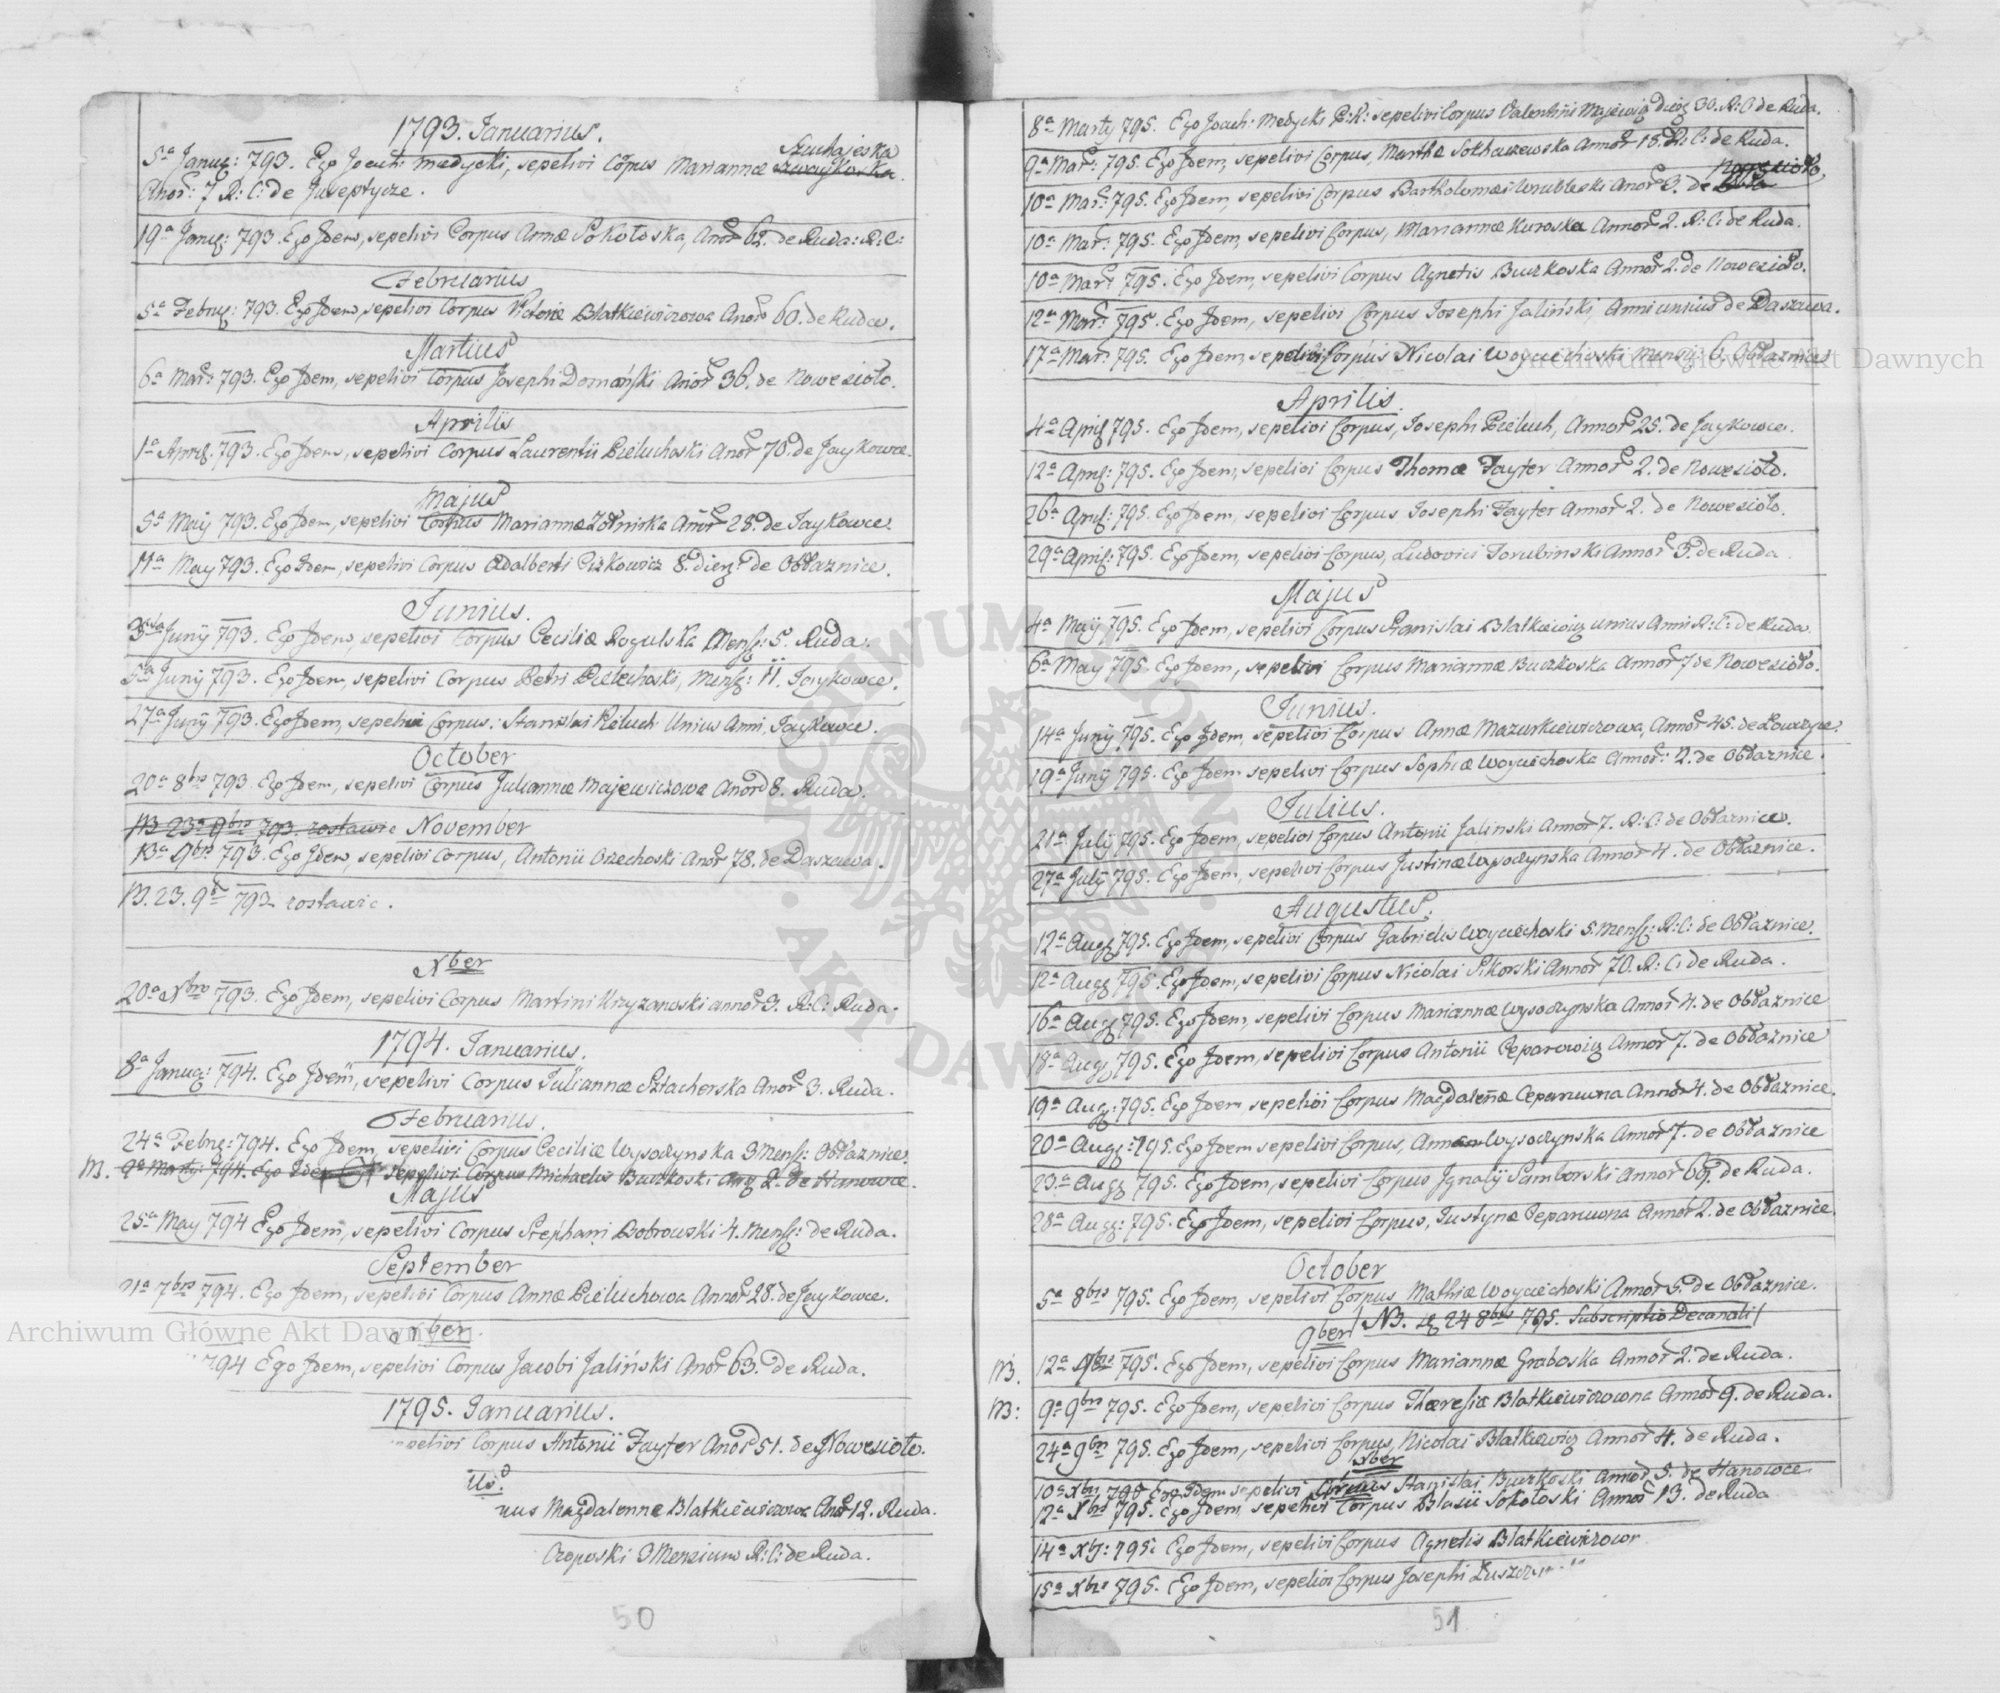 1793. Januarius.
5ª Januą: 793. Ego Joach: Medycki, sepelivi Corpus Mariannæ Szuchajeska
Anor: 7 R: C: de Juseptycze.
19ª Januą: 793. Ego Idem, sepelivi Corpus Annæ Sokołoska, Anor 62. de Ruda: R: C:
Februarius
5ª Februą: 793. Ego Idem, sepelivi Corpus Victoriæ Blatkiewiczowa Anor 60. de Ruda.
Martius
6ª Mar: 793. Ego Idem, sepelivi Corpus Josephi Domański Anor 36. de Nowesioło.
Aprilis
1ª Aprią. 793. Ego Idem, sepelivi Corpus Laurentii Pieluchoski Anor 70. de Jaykowce.
Majus
5ª Maÿ 793. Ego Idem, sepelivi Corpus Mariannæ Zołniska Anor 28. de Jaykowce.
11ª May 793. Ego Idem, sepelivi Corpus Adalberti 8. dierą. de Obłaznice.
Junius.
Junÿ 793. Ego Idem, sepelivi Corpus Ceciliæ Rogulska Mensą: 5. Ruda.
5ª Junÿ 793. Ego Idem, sepelivi Corpus Petri Pieluchoski, Mensą: 11. Jaykowce.
27ª Junÿ 793. Ego Idem, sepelivi Corpus: Stanislai Pieluch Unius Anni, Jaykowce.
October
20ª 8bris 793. Ego Idem, sepelivi Corpus Juliannæ Majewiczowa Anor 8. Ruda.
NB 23ª 9bris 793. zostawic November
13ª 9bris 793. Ego Idem, sepelivi Corpus, Antonii Orzechoski Anor 78. de Daszawa.
NB. 23. 9br 793. zostawic.
Xber
20ª Xbris 793. Ego Idem, sepelivi Corpus Martini Krzyzanoski annor 3. R: C: Ruda.
1794. Januarius.
8ª Januą: 794. Ego Idem, sepelivi Corpus Juliannæ Szłacherska Anor 3. Ruda.
Februarius.
24ª Febrą: 794. Ego Idem, sepelivi Corpus Ceciliæ Wysoczynska 3 Mensą: Obłaznice.
NB. 9ª Martÿ: 794. Ego Idem sepelivi Corpus Michaelis Buczkoski 2. de Hanowce.
Majus
25ª May 794 Ego Idem, sepelivi Corpus Stephani Dobrowski 4. Mensą: de Ruda.
September
21ª 7bris 794. Ego Idem, sepelivi Corpus Annæ Pieluchowa Annor 28. de Jaykowce.
Xber.
794 Ego Idem, sepelivi Corpus Jacobi Jaliński Anor 63. de Ruda.
1795. Januarius.
sepelivi Corpus Antonii Fayter Anor 51. de Nowesioło.
pus Magdalennæ Blatkiewiczowa Anor 12. Ruda.
3 Mensium R: C: de Ruda.
50
8ª Martÿ 795. Ego Joach: Medycki P: R: sepelivi Corpus Valentini Majewicz dierą 30. R: C: de Ruda.
9ª Mar: 795. Ego Idem, sepelivi Corpus, Marthæ Annor 18. R: C: de Ruda.
Nowesioło,
10ª Mar: 795. Ego Idem, sepelivi Corpus Bartholomæi Wrubleski Anor 3. de
10ª Mar: 795. Ego Idem, sepelivi Corpus, Mariannæ Kuroska Annor 2. R: C: de Ruda.
10ª Mar: 795. Ego Idem, sepelivi Corpus Agnetis Buczkoska Annor 2. de Nowesioło.
12ª Mar: 795. Ego Idem, sepelivi Corpus Josephi Jaliński, Anni unius de Daszawa.
17ª Mar: 795. Ego Idem, sepelivi Corpus Nicolai Woyciechoski Mensą: 6. Obłaznice
Aprilis.
4ª Aprią 795. Ego Idem, sepelivi Corpus, Josephi Pieluch, Annor 25. de Jaykowce.
12ª Aprią: 795. Ego Idem, sepelivi Corpus Thomæ Fayter Annor 2. de Nowesioło.
26ª Aprią: 795. Ego Idem, sepelivi Corpus Josephi Fayter Annor 2. de Nowesioło.
29ª Aprią: 795. Ego Idem, sepelivi Corpus, Ludovici Annor 3. de Ruda.
Majus
4ª Maÿ 795. Ego Idem, sepelivi Corpus Stanislai Blatkiewicz unius Anni R: C: de Ruda.
6ª May 795. Ego Idem, sepelivi Corpus Mariannæ Buczkoska Annor 7 de Nowesioło.
Junius.
14ª Junÿ 795. Ego Idem, sepelivi Corpus Annæ Mazurkiewiczowa, Annor 45. de
19ª Junÿ 795. Ego Idem sepelivi Corpus Sophiæ Woyciechoska Annor: 2. de Obłaznice.
Julius.
21ª Julÿ 795. Ego Idem, sepelivi Corpus Antonii Jalinski Annor 7. R: C: de Obłaznice.
27ª Julÿ 795. Ego Idem, sepelivi Corpus Justinæ Wysoczynska Annor 4. de Obłaznice.
Augustus.
12ª Augą 795. Ego Idem, sepelivi Corpus Gabrielis Woyciechoski 5. Mensą: R: C: de Obłaznice.
12ª Augą 795. Ego Idem, sepelivi Corpus Nicolai Sikorski Annor 70. R: C: de Ruda.
16ª Augą 795. Ego Idem, sepelivi Corpus Mariannæ Wysoczynska Annor 4. de Obłaznice
18ª Augą 795. Ego Idem, sepelivi Corpus Antonii Annor 7. de Obłaznice
19ª Augą: 795. Ego Idem sepelivi Corpus Magdalenæ Annor 4. de Obłaznice.
20ª Augą: 795. Ego Idem sepelivi Corpus, Annæ Wysoczynska Annor 7. de Obłaznice
23ª Augą 795. Ego Idem, sepelivi Corpus Ignatÿ Samborski Annor 69. de Ruda.
28ª Augą: 795. Ego Idem, sepelivi Corpus, Justynæ Annor 2. de Obłaznice.
October
5ª 8bris 795. Ego Idem, sepelivi Corpus Mathiæ Woyciechoski Annor 5. de Obłaznice.
9ber NB. 24 8bris 795. Subscriptio Decanali
NB. 12ª 9bris 795. Ego Idem, sepelivi Corpus Mariannæ Graboska Annor 2. de Ruda.
NB: 9ª 9bris 795. Ego Idem, sepelivi Corpus Theresiæ Blatkiewiczowna Annor 9. de Ruda.
24ª 9bris 795. Ego Idem, sepelivi Corpus, Nicolai Blatkiewicz Annor 4. de Ruda.
Xber
10ª Xbris 795 Ego Idem sepelivi Corpus Stanislai Buczkoski Annor 5. de Hanowce
12ª Xbris 795. Ego Idem, sepelivi Corpus Blasii Sokołoski Annor 13. de Ruda
14ª Xbr: 795. Ego Idem, sepelivi Corpus Agnetis Blatkiewiczow
15ª Xbris 795. Ego Idem, sepelivi Corpus Josephi
51
Archiwum Główne Akt Dawnych
Archiwum Główne Akt Dawnych
ARCHIWUM GŁÓWNE AKT DAWNYCH